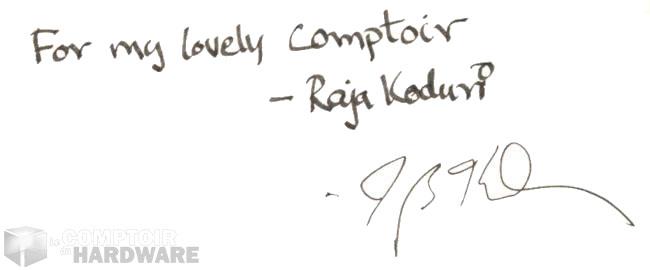 For my lovely Comptoir
- Raja Koduri
le COMPTOIR du HARDWARE